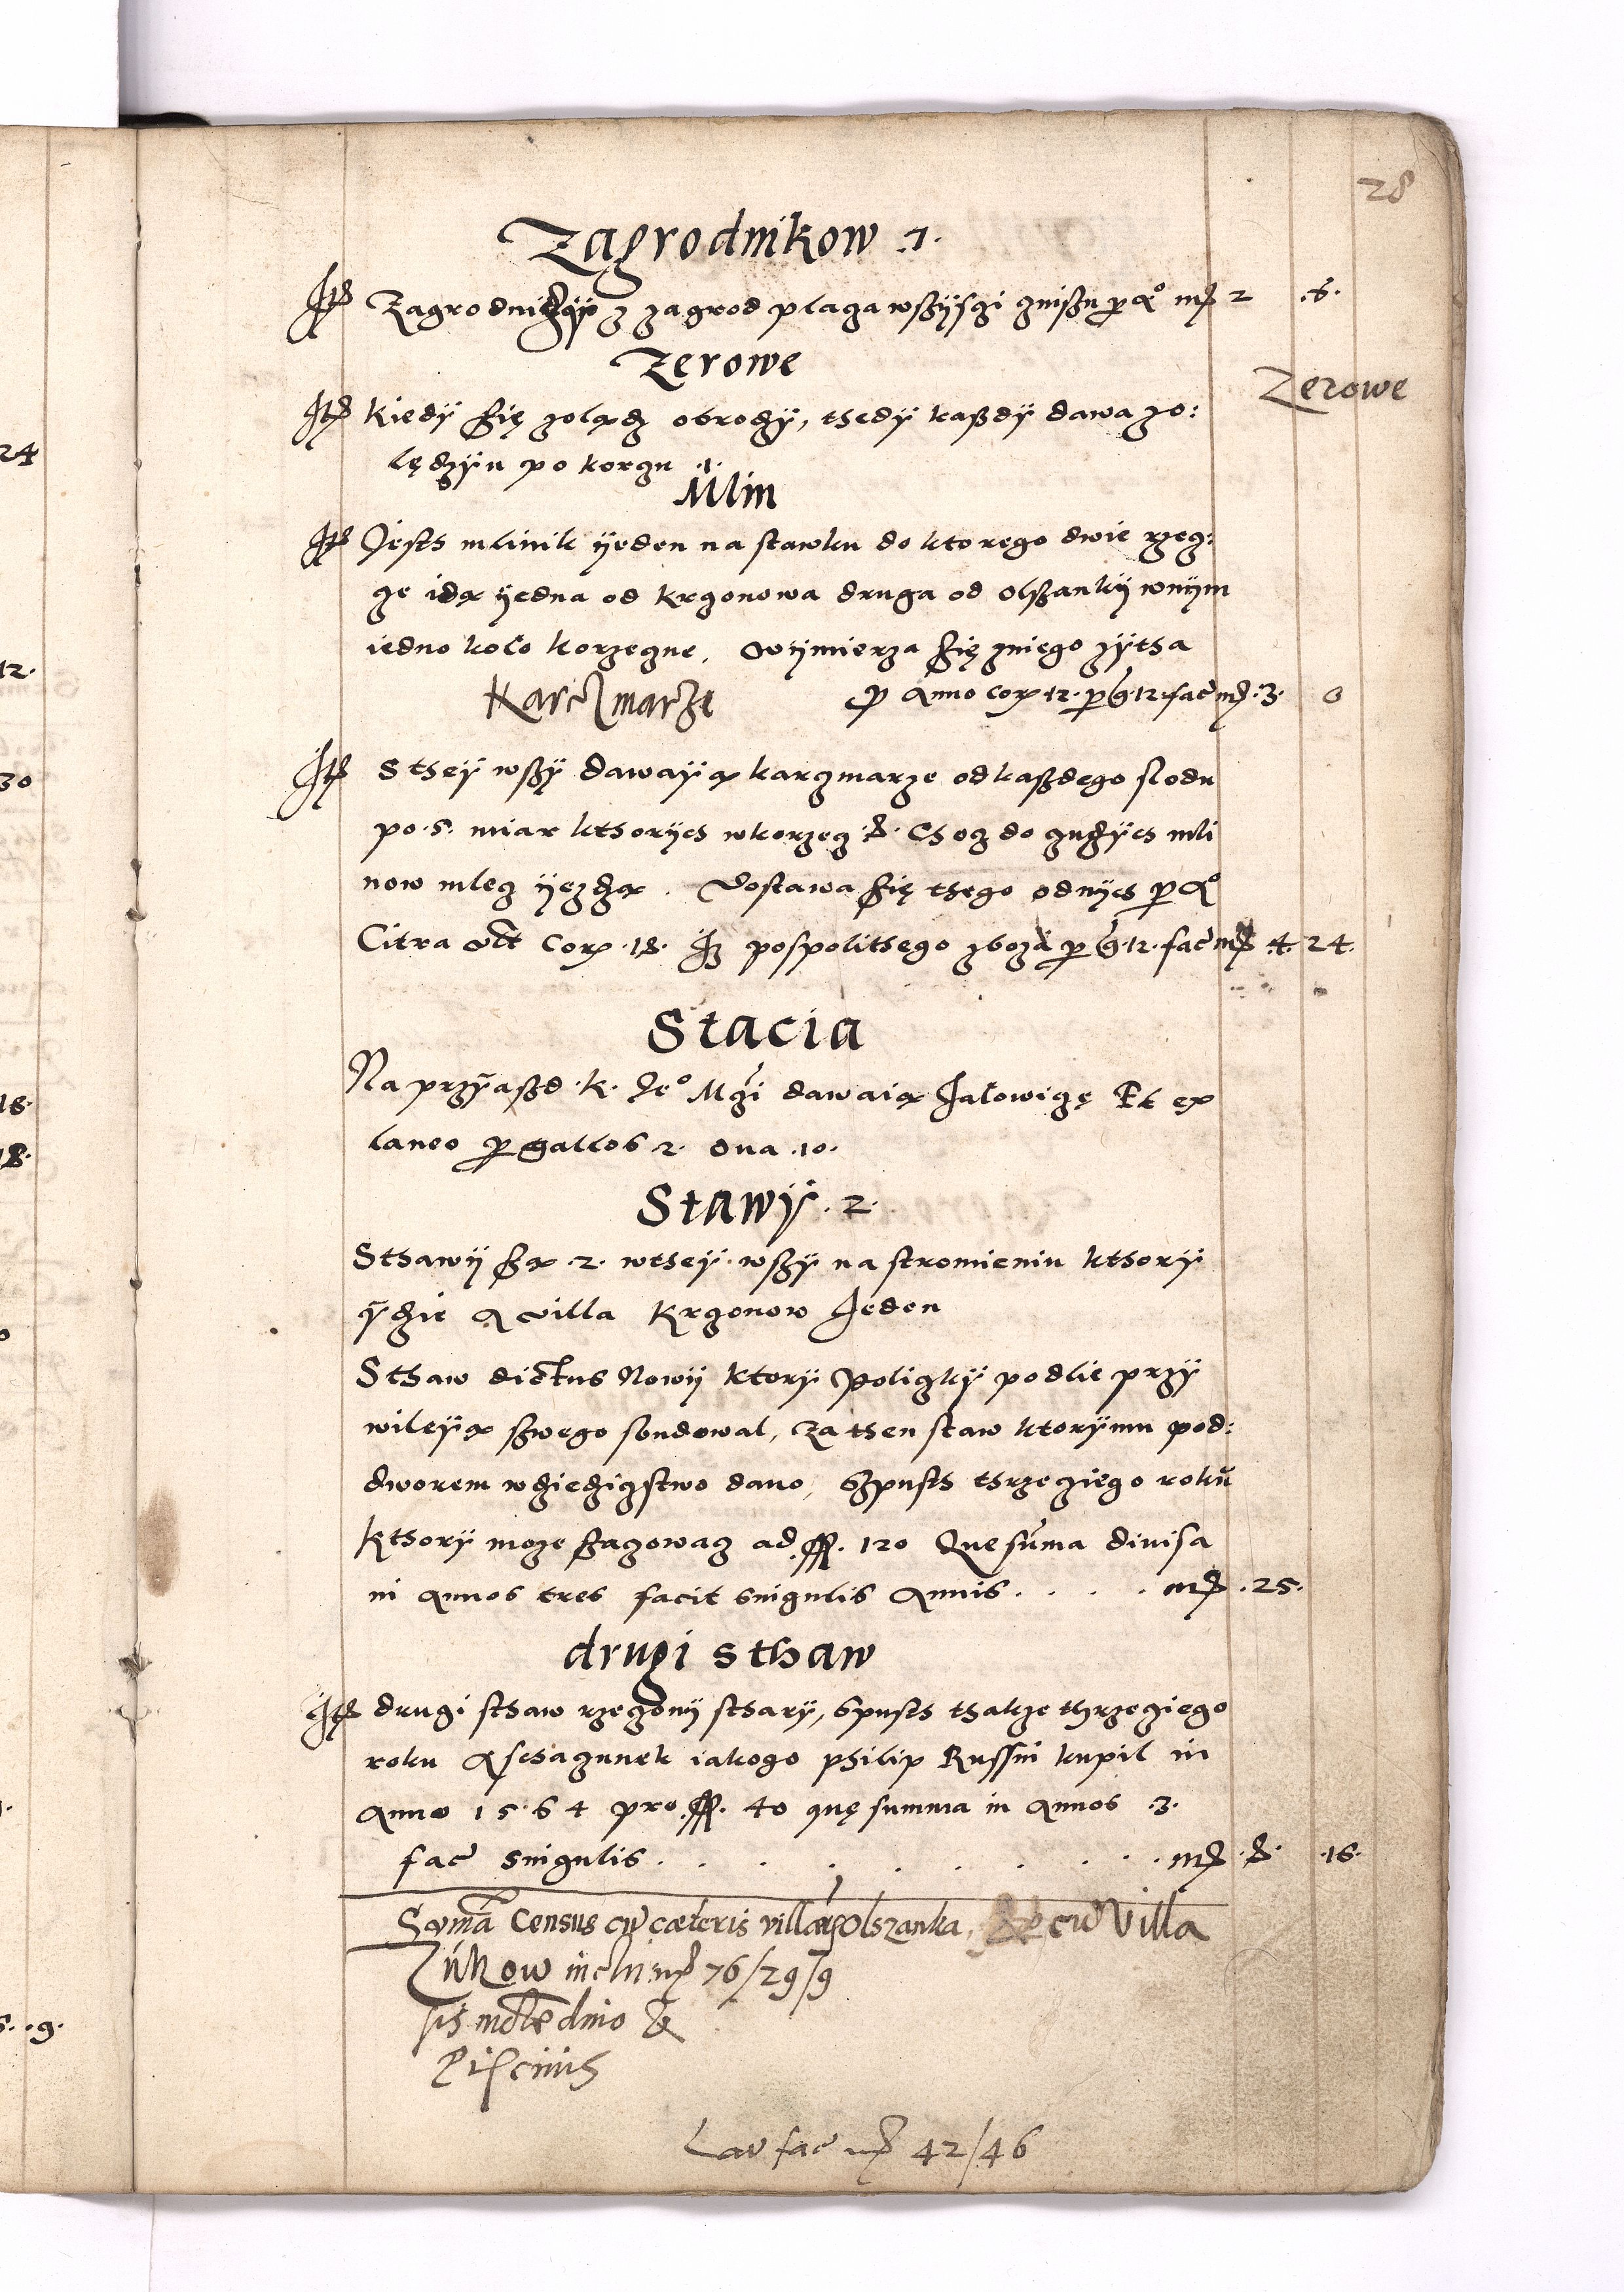 28
Zagrodnikow .7.
Itē Zagrodniczÿ z zagrod placza wszÿsczi cżinszu p Aº mꝶ 2 .6.
Zerowe
Zerowe
Itē kiedÿ ssię zolądz obrodzÿ, thedÿ kaszdÿ dawa zo:
lędzÿu po korczu .1.
Mlin
Itē Jesth mlinik ÿeden na stawku do ktorego dwie rzecz:
ce idą ÿedna od Krczonowa druga od Olszankÿ wnÿm
iedno koło korzeczne, Wÿmierza ssię zniego zÿtha
Karczmarze
p Anno Cor. 12. p g. 12. fac mꝶ .3. 0
Itē Stheÿ wszÿ dawaÿą karczmarze od kaszdego słodu
po .5. miar kthorÿch wkorzecz .8. Chocz do czudzÿch mli
now mlecz ÿezdzą . Dostawa ssię thego odnÿch p Aº
Citra vel Cor. 18. Itē pospolithego zboza p g. 12. fac mꝶ 4. 24.
Stacia
Na przÿaszd .K. Jeº Mczi dawaią Jałowiczę Et ex
laneo p gallos 2. Oua .10.
Stawÿ .2.
Sthawÿ ssą .2. wtheÿ wszÿ na stromieniu kthorÿ
ÿdzie a villa Krczonow Jeden
Sthaw dictus Nowÿ ktorÿ Policzkÿ podlie przÿ
wileÿą szwego fundowal, Za then staw ktorÿmu pod:
dworem wdziedzicztwo dano, Szpusth thrzecziego rokŭ
Kthorÿ moze ssaczowacz ad ff. 120 Que sūma diuisa
in Annos tres facit singulis Annis . . . . mꝶ .25.
drugi sthaw
Itē drugi sthaw rzeczonÿ stharÿ, Spusth thakze thrzecziego
roku A schaczunek iakogo Philip Russin kupil in
Anno 1564 pro ff. 40 quę summa in Annos .3.
fac singulis . . . . . . . . mꝶ .8. .16.
Somā Census cū cæteris villæ Olszanka, cū Villa
Zukow inclu mꝶ 76/29/9
sis molēdino &
Piscinis
Lat fac mꝶ 42/46